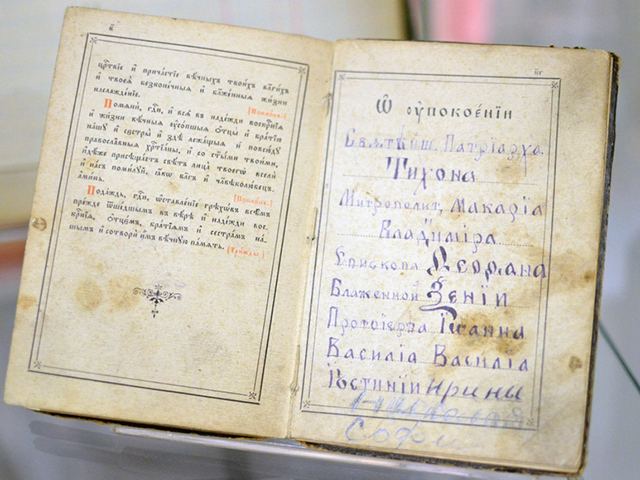 в҃
црⷭ҇твіе и причастіе вѣчныхъ твоихъ благихъ
и твоеѧ безконечныѧ и блаженныѧ жизни
наслажденіе.
Помѧни, гдⷭ҇и, и всѧ въ надежди воскрⷭ҇нїѧ [Поклонъ.]
и жизни вѣчныѧ ѹсопшыѧ отцы и братїю
нашу и сестры и здѣ лежащыѧ и повсюду
православныѧ хрⷭ҇тїаны, и со ст҃ыми твоими,
идѣже присѣщаетъ свѣтъ лица твоегѡ всели
и насъ помилуй, ꙗкѡ благъ и человѣколюбецъ.
аминь.
Подаждь, гдⷭ҇и, ѡставленіе грѣхѡвъ всѣмъ [Поклонъ.]
прежде ѿшедшымъ въ вѣрѣ и надежди вос-
крⷭ҇нїѧ, отцемъ, братїѧмъ и сестрамъ на-
шымъ и сотвори имъ вѣчную память. [Трижды]
Ѡ ѹпокоеніи
Святѣйш. Патріарха
Тихона
Митрополит. Макарія
Владиміра
Епископа
Блаженной Ѯеніи
Протоіерея Іоанна
Василія Василія
Іустиніи Ирины
Софи